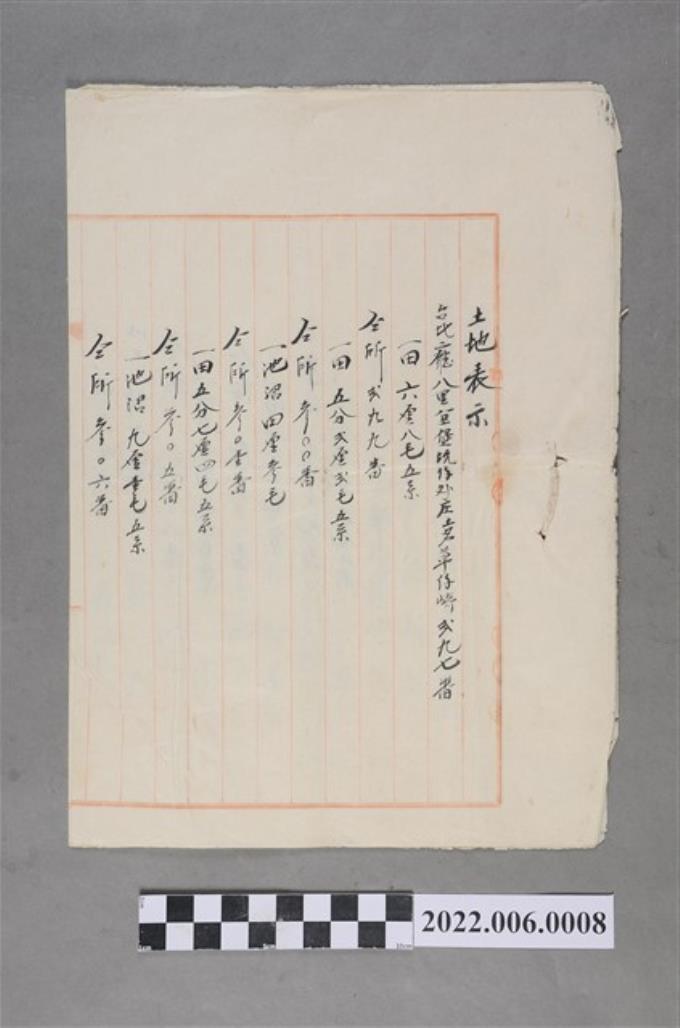 土地表示
台北廳八里坌堡坑仔外庄土名草仔崎弍九七番
一田 六厘八毛五糸
仝所 弍九九番
一田 五分弍厘弍毛五糸
仝所 参〇〇番
一池沼 四厘参毛
仝所 参〇壹番
一田 五分七厘四毛五糸
仝所 参〇五番
一池沼 九厘壹毛五糸
仝所 参〇六番
2022.006.0008